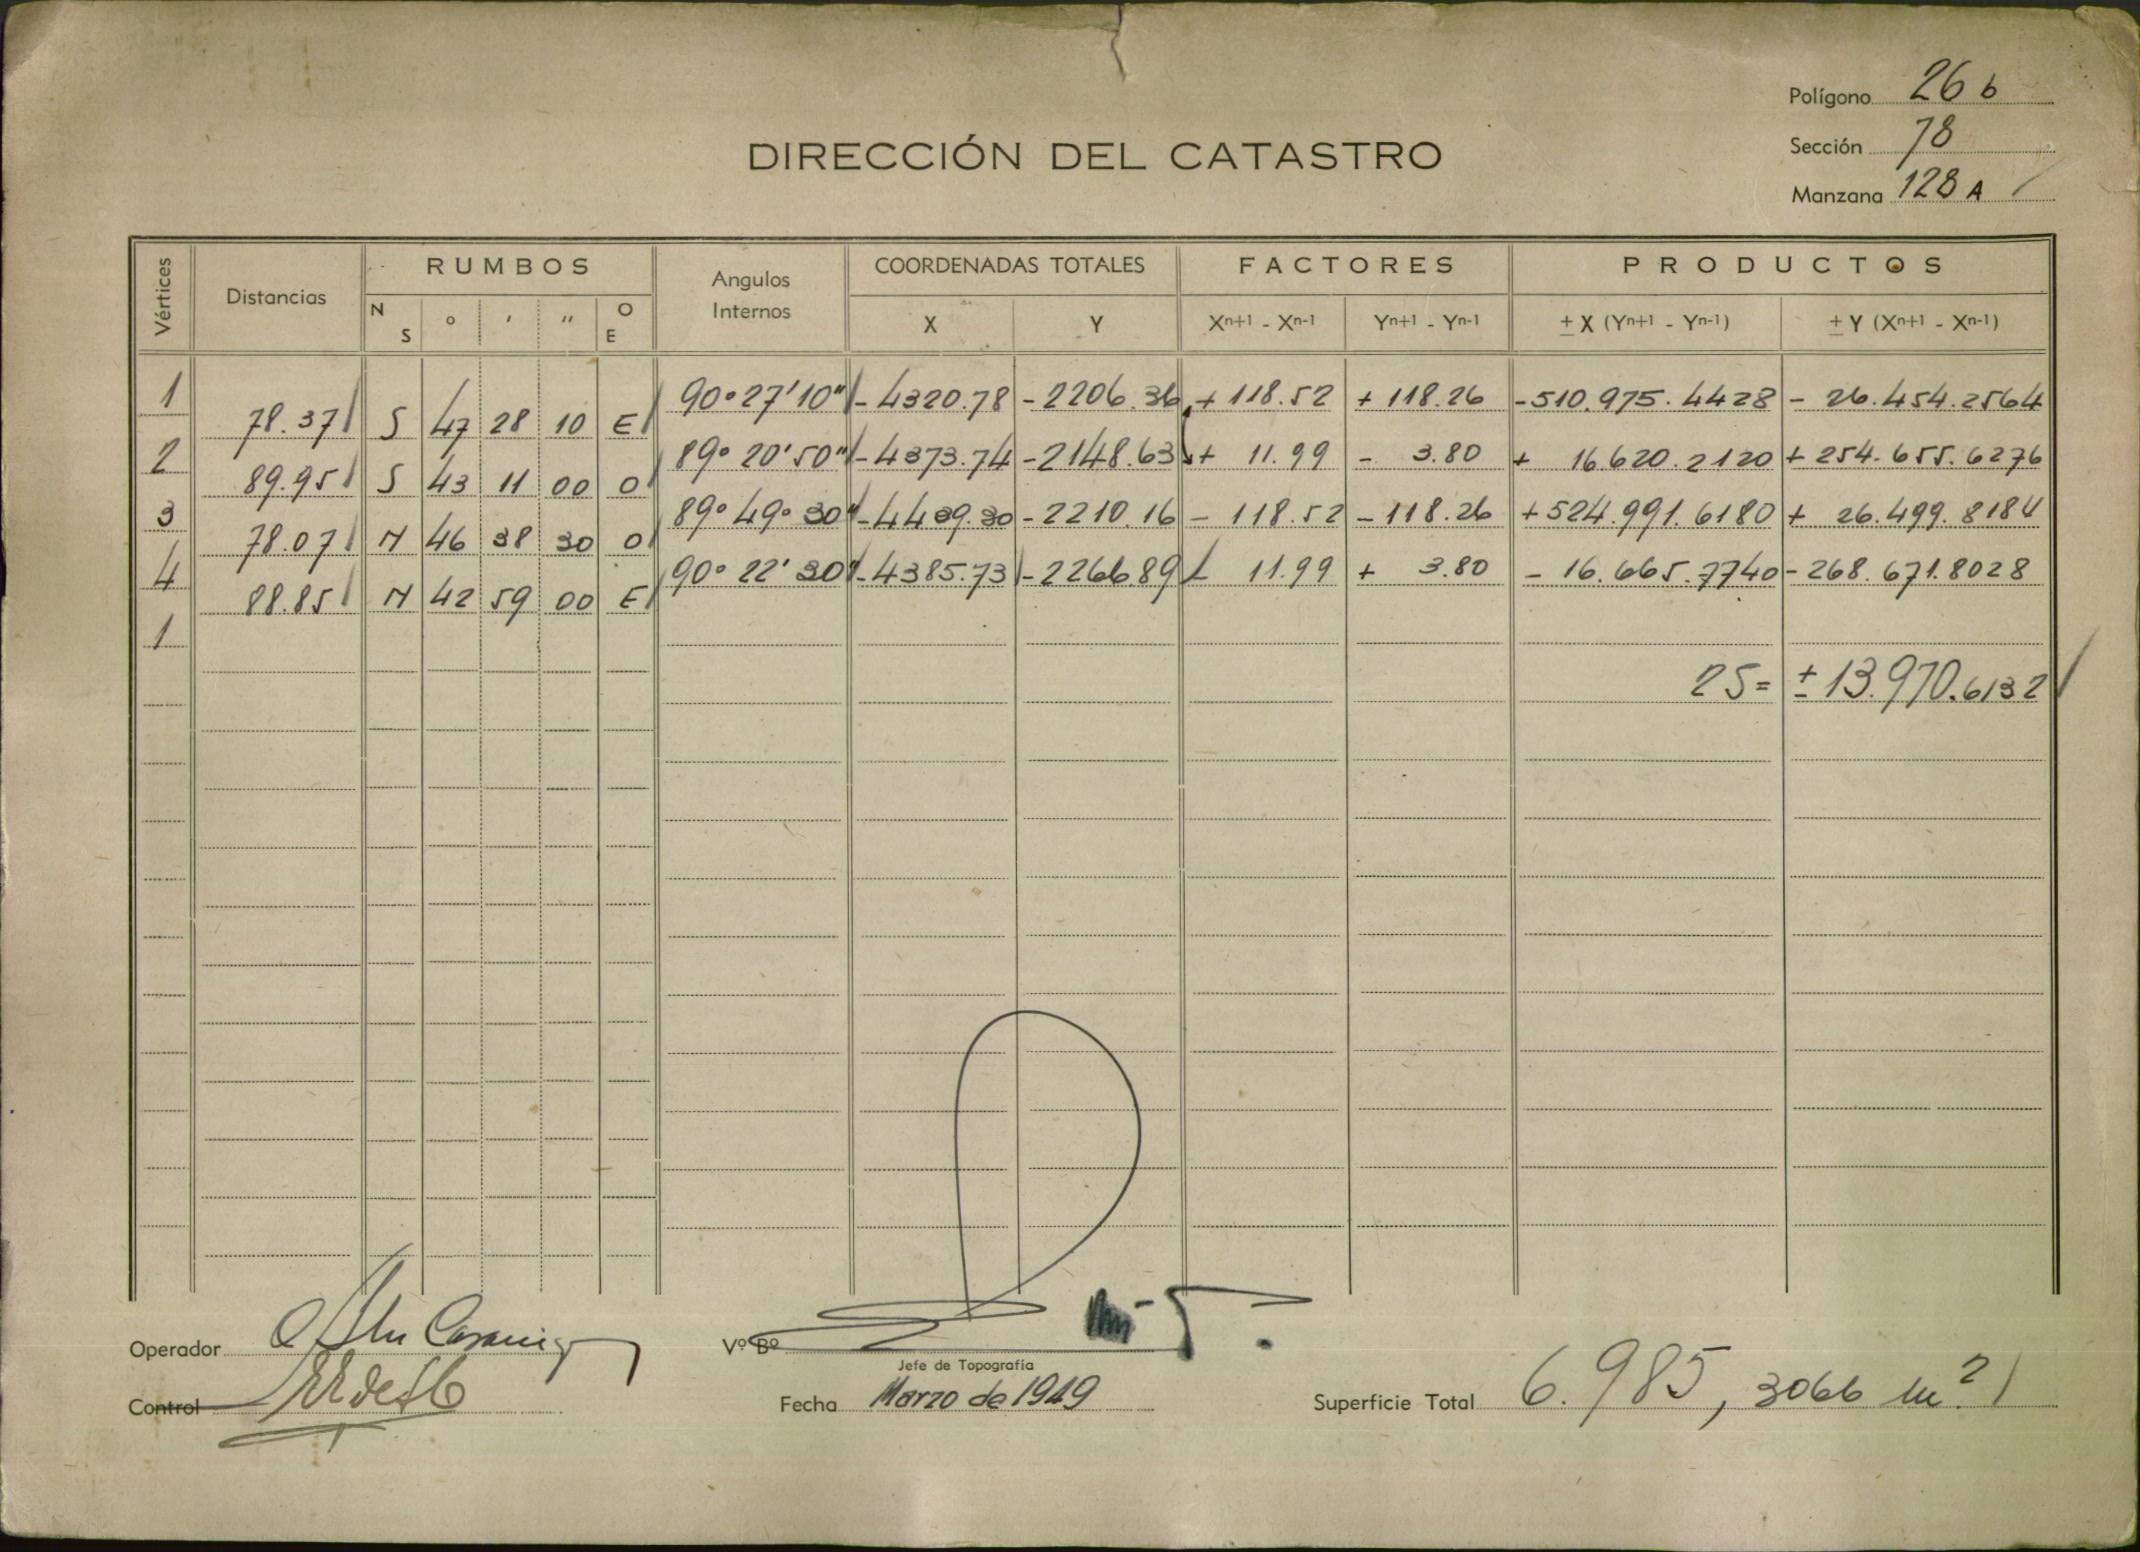 Polígono 26 b
DIRECCIÓN DEL CATASTRO
Sección 78
Manzana 128 A
Vértices Distancias RUMBOS Angulos Internos COORDENADAS TOTALES FACTORES PRODUCTOS
N S ° ' '' O E X Y Xn+1 - Xn-1 Yn+1 - Yn-1 ± X (Yn+1 - Yn-1) ± Y (Xn+1 - Xn-1)
1 90°27'10" -4320.78 -2206.36 +118.52 +118.26 -510.975.4428 - 26.454.2564
78.37 S 47 28 10 E
2 89°20'50" -4373.74 -2148.63 + 11.99 - 3.80 + 16.620.2120 +254.655.6276
89.95 S 43 11 00 O
3 89°49°30" -4439.30 -2210.16 - 118.52 -118.26 +524.991.6180 + 26.499.8184
78.07 N 46 38 30 O
4 90°22'30" -4385.73 -2266.89 - 11.99 + 3.80 - 16.665.7740 -268.671.8028
88.85 N 42 59 00 E
1
2S= ±13.970.6132
Operador
Vº Bº
Jefe de Topografía
Control
Fecha Marzo de 1949
Superficie Total 6.985,3066 m²